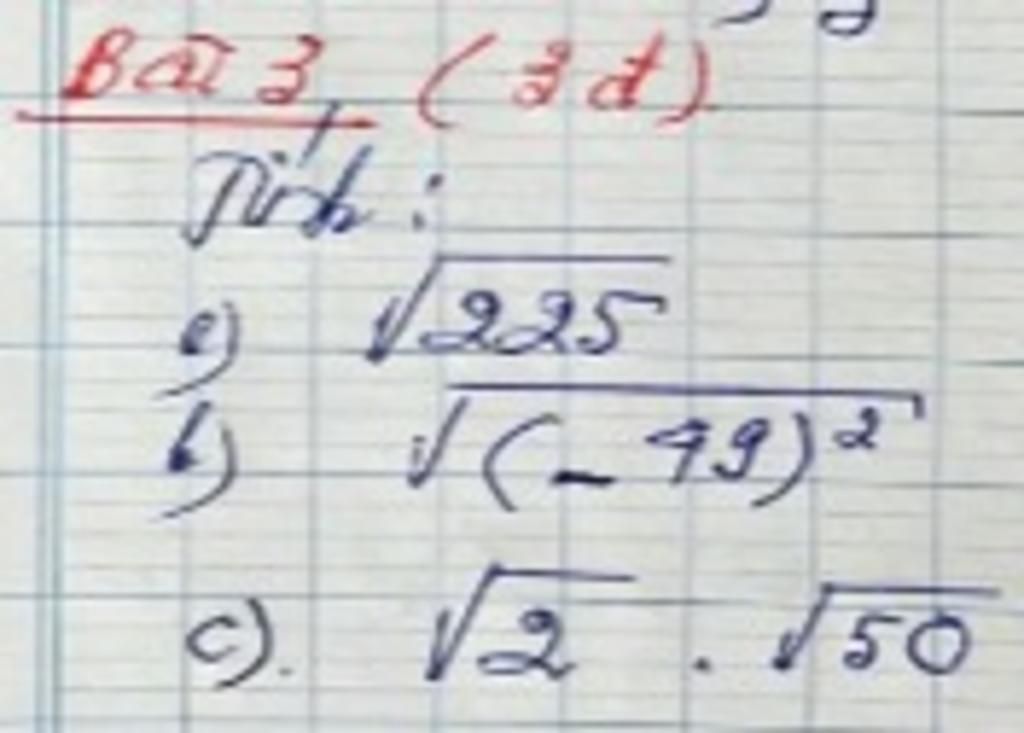 Bài 3 (3đ)
Tính :
a) √225
b) √(-49)²
c). √2 . √50